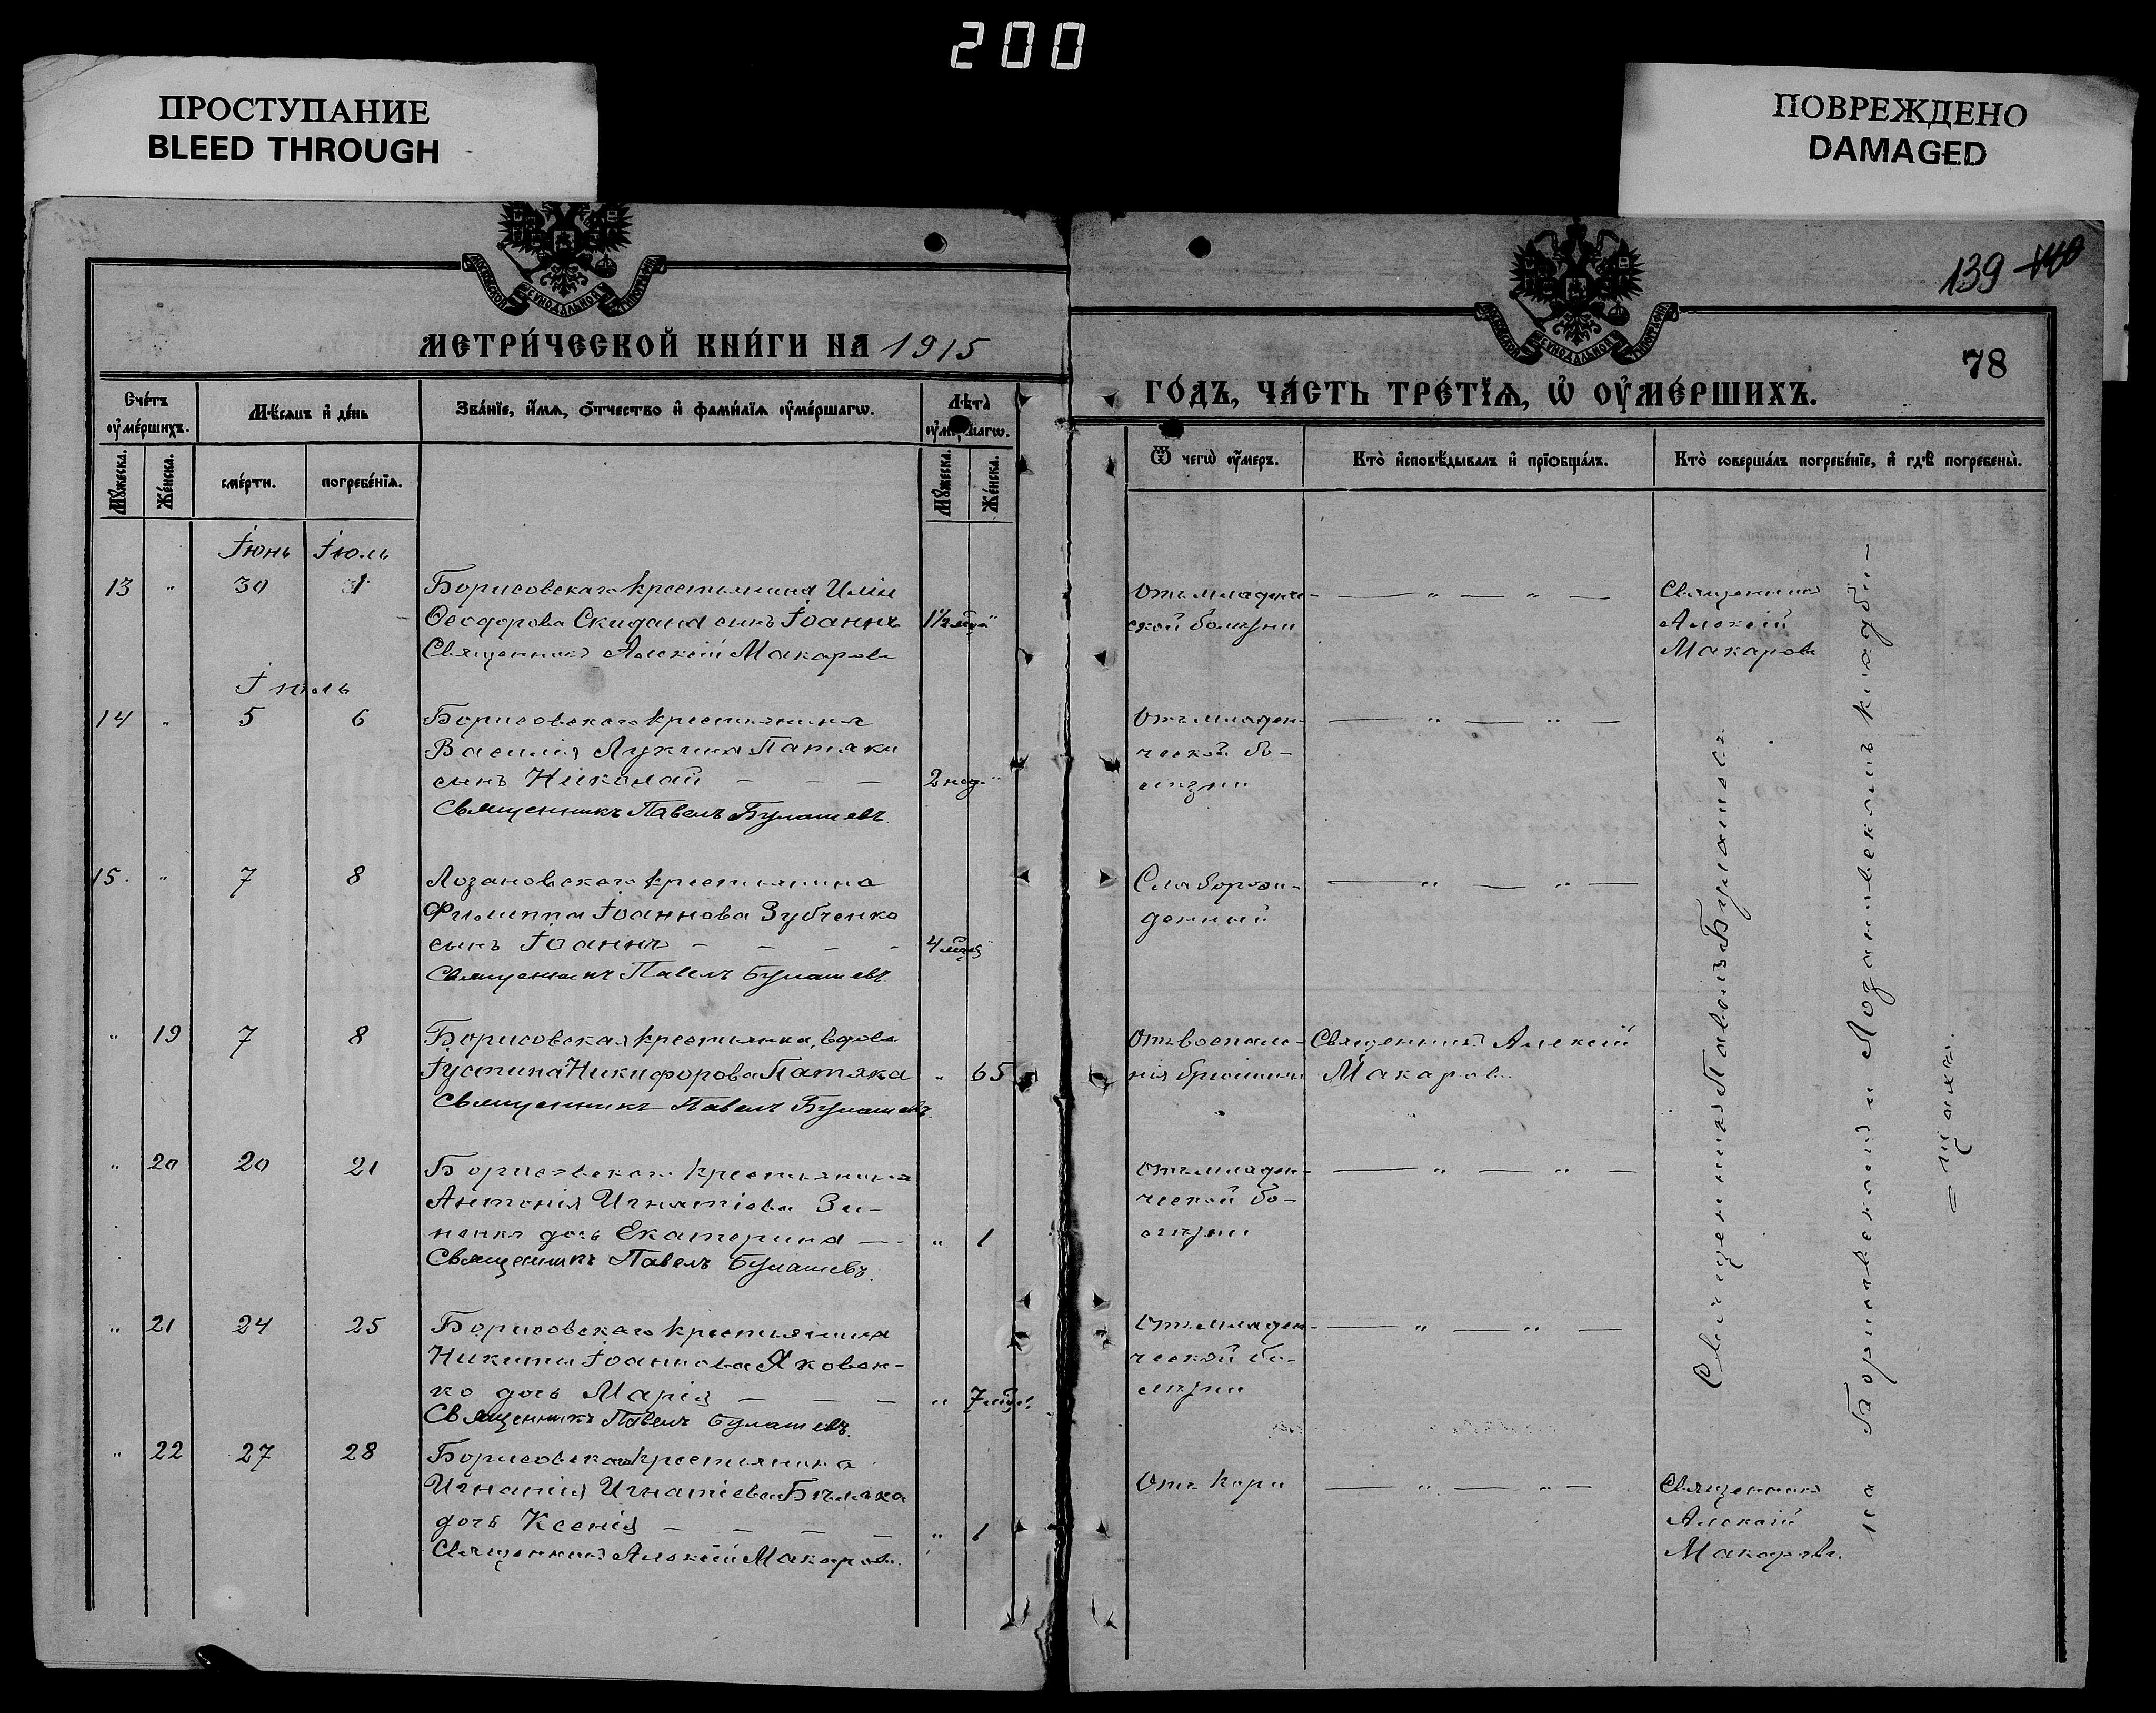 200
ПРОСТУПАНИЕ
BLEED THROUGH
ПОВРЕЖДЕНО
DAMAGED
139 140
78
МЕТРИ́ЧЕСКОЙ КНИ́ГИ НА 1915
ГО́ДЪ, ЧА́СТЬ ТРЕ́ТЇѦ, Ѡ҆ ОУ҆МЕ́РШИХЪ.
Сче́тъ оу҆ме́ршихъ.
Мѣ́сяцъ и҆ де́нь
Зва́нїе, и҆́мѧ, ѻ҆́тчество и҆ фами́лїѧ оу҆ме́ршагѡ.
Лѣ́та оу҆ме́ршагѡ.
Ѿ чегѡ̀ оу҆́меръ.
Кто̀ и҆сповѣ́дывалъ и҆ прїѡбща́лъ.
Кто̀ соверша́лъ погребе́нїе, и҆ гдѣ̀ погребены̀.
Мꙋ́жеска.
Же́нска.
сме́рти.
погребе́нїѧ.
Мꙋ́жеска.
Же́нска.
Іюнь Іюль
13 " 30 1 Борисовскаго крестьянина Иліи
Ѳеодорова Скидана сынъ Іоаннъ 1½ мѣс. "
Священникъ Алексій Макаровъ
Отъ младенче-
ской болѣзни
— " — " —
Священникъ
Алексій
Макаровъ
Іюль
14 " 5 6 Борисовскаго крестьянина
Василія Лукина Патяки
сынъ Николай — — — 2 нед. "
Священникъ Павелъ Булашевъ.
Отъ младен-
ческой бо-
лѣзни
— " — " —
15. " 7 8 Лозановскаго крестьянина
Филиппа Іоаннова Зубченко
сынъ Іоаннъ — — — — 4 мѣс. "
Священникъ Павелъ Булашевъ.
Слаборож-
денный
— " — " —
" 19 7 8 Борисовская крестьянка, вдова
Іустина Никифорова Патяка " 65
Священникъ Павелъ Булашевъ.
Отъ воспале-
нія брюшины
Священникъ Алексій
Макаровъ.
" 20 20 21 Борисовскаго крестьянина
Антонія Игнатіева Зи-
ненка дочь Екатерина — " 1
Священникъ Павелъ Булашевъ.
Отъ младен-
ческой бо-
лѣзни
— " — " —
" 21 24 25 Борисовскаго крестьянина
Никиты Іоаннова Яковен-
ко дочь Марія — — — " 7 мѣс.
Священникъ Павелъ Булашевъ.
Отъ младен-
ческой бо-
лѣзни
— " — " —
" 22 27 28 Борисовскаго крестьянина
Игнатія Игнатіева Бѣляка
дочь Ксенія — — — — " 1
Священникъ Алексій Макаровъ.
Отъ кори
— " — " —
Священникъ
Алексій
Макаровъ.
Священникъ Павелъ Булашевъ
на Борисовскомъ и Лозановскомъ кладби-
щахъ.